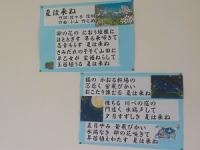 夏は来ぬ
卯の花の におう垣根に
ほととぎす 早も来鳴きて
忍音もらす 夏は来ぬ
さみだれの そそぐ山田に
早乙女が 裳裾ぬらして
玉苗植うる 夏は来ぬ
橘の かおる軒端の
窓近く 蛍飛びかい
おこたり諌むる 夏は来ぬ
楝ちる 川べの宿の
門遠く 水鶏声して
夕月すずしき 夏は来ぬ
五月やみ 蛍飛びかい
水鶏なき 卯の花咲きて
早苗植えわたす 夏は来ぬ